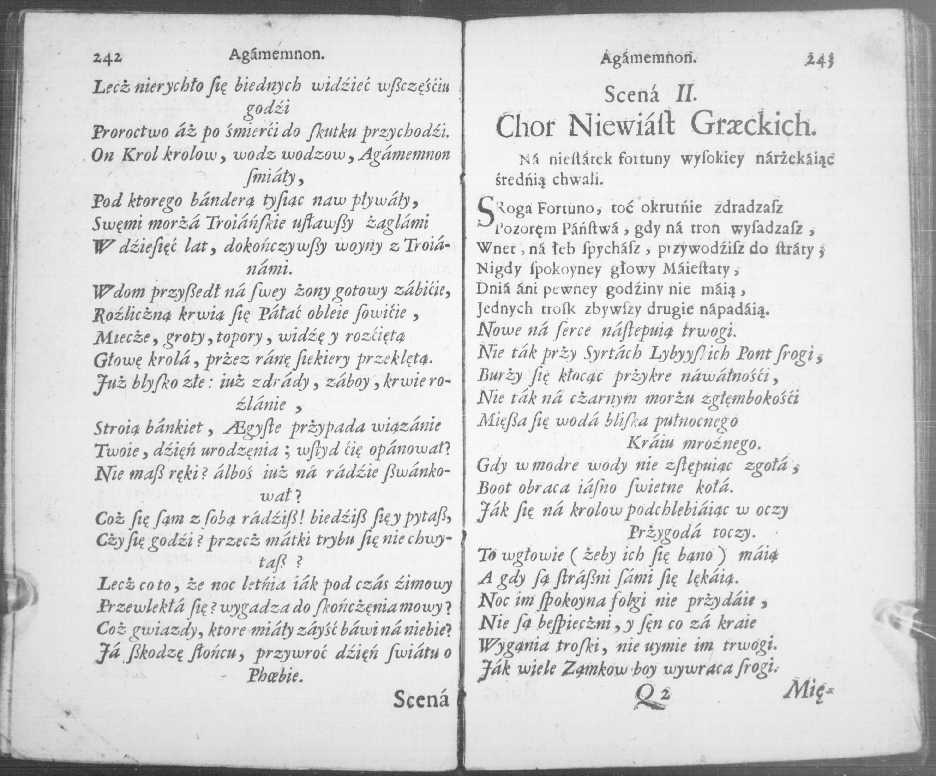 242 Agámemnon.
Lecż nierychło ſię biednych widźieć wßczęśćiu
godźi
Proroctwo áż po śmierći do ſkutku przychodźi.
On Krol krolow, wodz wodzow, Agámemnon
ſmiáły,
Pod ktorego bánderą tyſiąc naw pływáły,
Swęmi morżá Troiáńſkie uſławßy żaglámi
W dźieſięć lat, dokończywßy woyny z Troiá-
námi.
Wdom przyßedł ná ſwey żony gotowy zábićie,
Roźliczną krwią ſię Páłać obleie ſowićie,
Miecże, groty, topory, widźę y rozćiętą
Głowę krolá, przez ránę ſiekiery przeklętą.
Już blyſko złe: iuż zdrády, záboy, krwie ro-
źlánie,
Stroią bánkiet, Ægyſte przypada wiązánie
Twoie, dźięń urodzęnia; wſtyd ćię opánował?
Nie maß ręki? álboś iuż ná rádźie ßwánko-
wał?
Coż ſię ſąm z ſobą rádźiß! biedźiß ſię y pytaß,
Cży ſię godźi? przecż mátki trybu ſię nie chwy-
taß ?
Lecż co to, że noc letńia iák pod czás źimowy
Przewlekłá ſię? wygadza do ſkończęnia mowy?
Coż gwiazdy, ktore miáły záyść báwi ná niebie?
Já ßkodzę ſłońcu, przywroć dźięń ſwiátu o
Phœbie.
Scená
Agámemnon. 243
Scená II.
Chor Niewiáſt Græckich.
Ná nieſtátek fortuny wyſokiey nárżekáiąc
średńią chwali.
SRoga Fortuno, toć okrutńie zdradzaſz
Pozoręm Páńſtwá, gdy ná tron wyſadzaſz,
Wnet, ná łeb ſpycháſz, przywodźiſz do ſtráty;
Nigdy ſpokoyney głowy Máieſtaty,
Dniá áni pewney godźiny nie máią,
Jednych troſk zbywſzy drugie nápadáią.
Nowe ná ſerce náſtepuią trwogi.
Nie ták prży Syrtách Lybyyſkich Pont ſrogi,
Burży ſię kłocąc prżykre náwáłnośći,
Nie ták ná cżarnym morżu zgłęmbokośći
Mięßa ſię wodá bliſka pułnocnego
Kráiu mroźnego.
Gdy w modre wody nie zſtępuiąc zgołá;
Boot obraca iáſno ſwietne kołá.
Ják ſię ná krolow podchlebiáiąc w oczy
Prżygodá toczy.
To wgłowie ( żeby ich ſię bano ) máią
A gdy ſą ſtráßni ſámi ſię lękáią.
Noc im ſpokoyna folgi nie prżydáie,
Nie ſą beſpiecżni, y ſęn co zá kraie
Wygania troſki, nie uymie im trwogi.
Ják wiele Zamkow boy wywraca ſrogi.
Q 2 Mię-